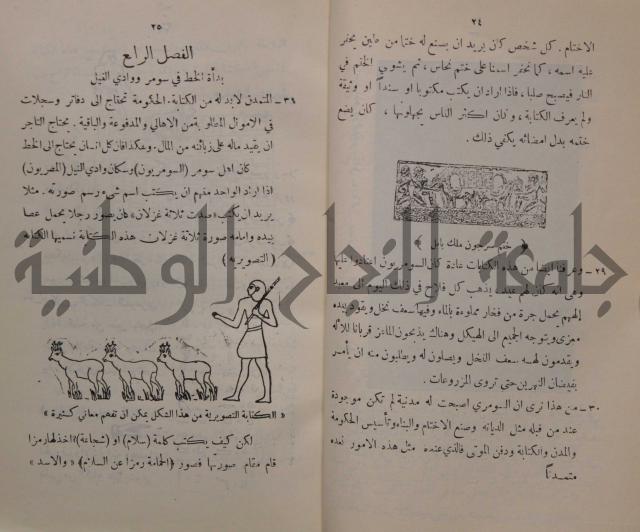 ٢٤
الاختام . كل شخص كان يريد ان يصنع له ختما من طين يحفر
عليه اسمه ، كما نحفر اسمنا على ختم نحاس ، ثم يشوي الختم في
النار فيصبح صلبا ، فاذا اراد ان يكتب مكتوبا او سنداً او وثيقة
ولم يعرف الكتابة ، وكان اكثر الناس يجهلونها ، كان يضع
ختمه بدل امضائه يكفي ذلك .
﴿ ختم سرجون ملك بابل ﴾
٢٩ – وعرفنا ايضا من هذه الكتابات عادة كان السومريون اعتادوا عليها
وهي انه كان لهم عيد يذهب كل فلاح في ذلك اليوم الى معبد
الههم يحمل جرة من فخار مملوءة بالماء وفيها سعف نخل ويقود بيده
معزى ويتوجه الجميع الى الهيكل وهناك يذبحون الماعز قربانا للاله
ويقدمون لهم سعف النخل ويصلون له ويطلبون منه ان يأمر
بفيضان النهرين حتى تروى المزروعات .
٣٠ – من هذا نرى ان السومري اصبحت له مدنية لم تكن موجودة
عند من قبله مثل الديانة وصنع الاختام والبناء وتأسيس الحكومة
والمدن والكتابة ودفن الموتى فالذي عنده مثل هذه الامور نعده
متمدناً
٢٥
الفصل الرابع
بدأة الخط في سومر ووادي النيل
٣١ – المتمدن لا بد له من الكتابة . الحكومة تحتاج الى دفاتر وسجلات
في الاموال المطلوبة من الاهالي والمدفوعة والباقية . يحتاج التاجر
ان يقيد ماله على زبائنه من المال . وهكذا فان كل انسان يحتاج الى الخط
كان اهل سومر (السومريون) وسكان وادي النيل (المصريون)
اذا اراد الواحد منهم ان يكتب اسم شيء رسم صورته . مثلا
يريد ان يكتب «صدت ثلاثة غزلان» كان يصور رجلا يحمل عصا
بيده وامامه صورة ثلاثة غزلان هذه الكتابة نسميها الكتابة
( التصويرية )
« الكتابة التصويرية من هذا الشكل يمكن ان تفهم معاني كثيرة »
لكن كيف يكتب كلمة (سلام) او (شجاعة) ؟ اخذ لها رمزا
قام مقام صورتها فصور (الحمامة رمزا عن السلام) « والاسد »
جامعة النجاح الوطنية